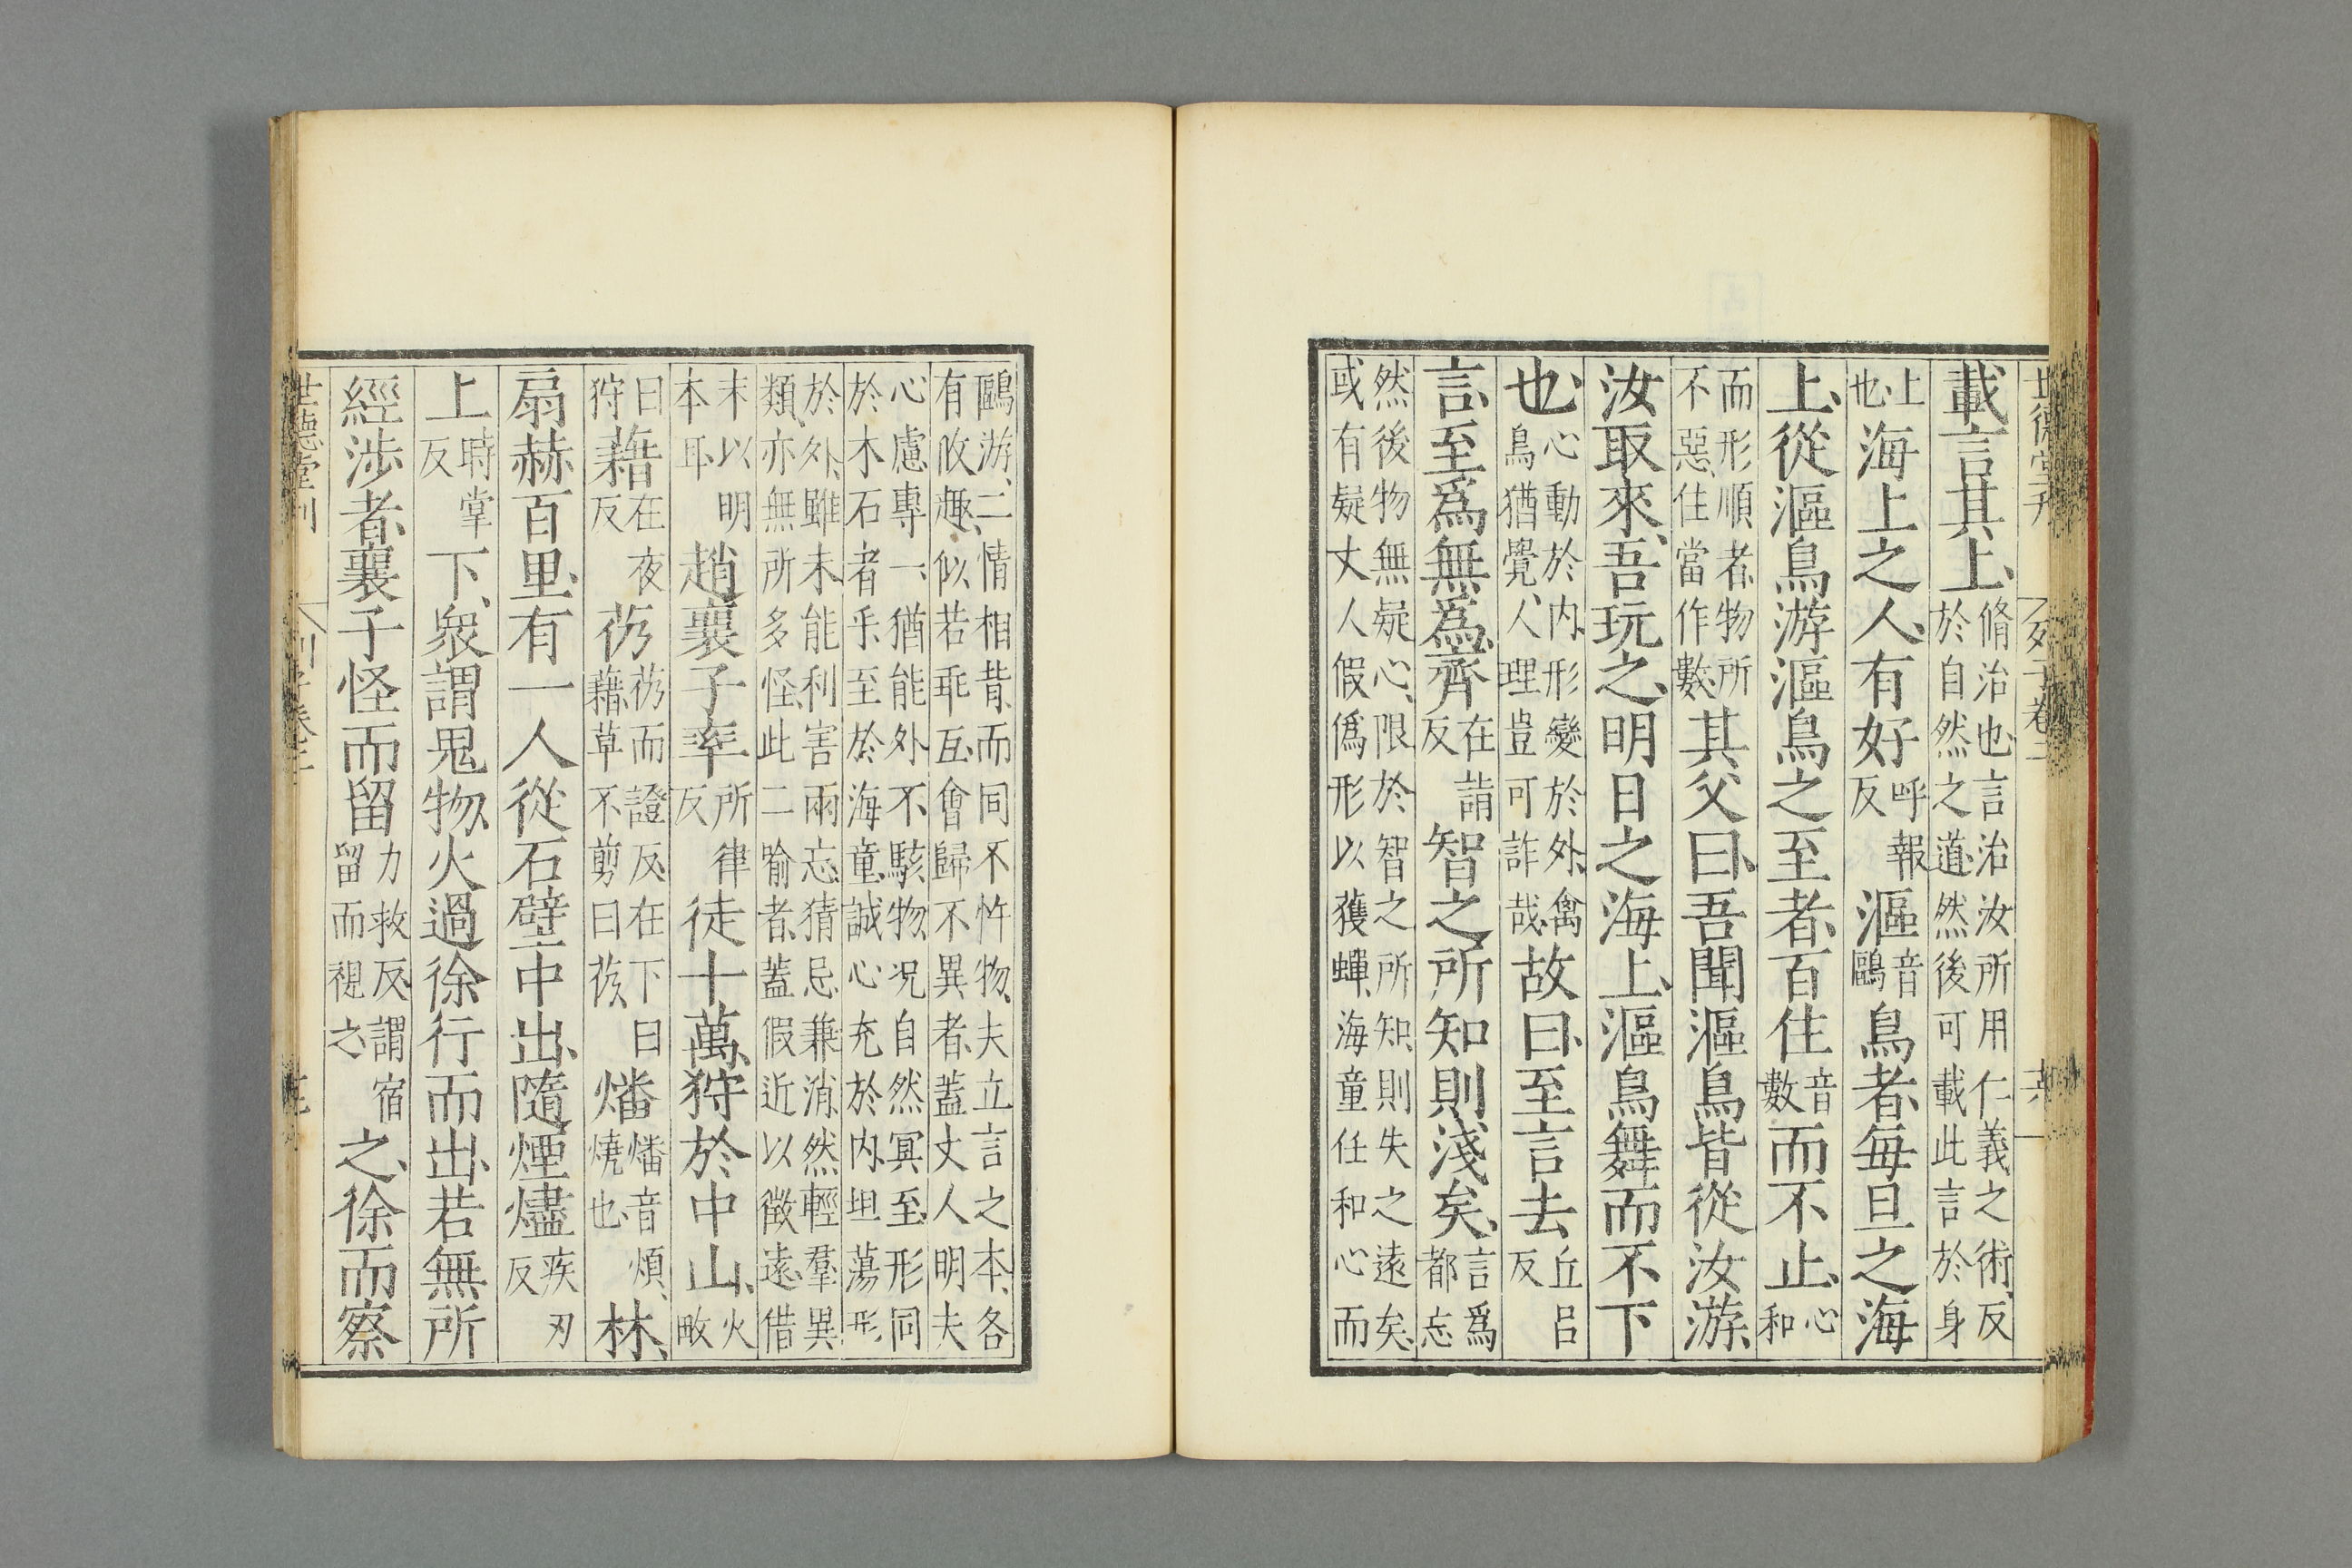 世德堂刊　列子卷二
載言其上、脩治也、言治汝所用仁義之術、反於自然之道、然後可載此言於身
上也、海上之人、有好呼報反漚音鷗鳥者、每旦之海
上、從漚鳥游、漚鳥之至者、百住音數而不止、心和
而形順者、物所不惡、住當作數、其父曰、吾聞漚鳥皆從汝游、
汝取來、吾玩之、明日之海上、漚鳥舞而不下
也、心動於内、形變於外、禽鳥猶覺、人理豈可詐哉、故曰、至言去丘呂反
言、至爲無爲、齊在詣反智之所知、則淺矣、言爲都忘
然後物無疑心、限於智之所知、則失之遠矣、或有疑丈人假僞形以獲蟬、海童任和心而
鷗游、二情相背、而同不忤物、夫立言之本、各有攸趣、似若乖互、會歸不異者、蓋丈人明夫
心慮專一、猶能外不駭物、况自然冥至、形同於木石者乎、至於海童、誠心充於内、坦蕩形
於外、雖未能利害兩忘、猜忌兼消、然輕羣異類、亦無所多怪、此二喻者、蓋假近以徵遠、借
末以明本耳、趙襄子率所律反徒十萬、狩於中山、火畋
曰狩藉在夜反艿艿而證反、在下曰藉、草不剪曰艿、燔燔音煩、燒也、林、
扇赫百里、有一人從石壁中出、隨煙燼疾刃反
上時掌反下、衆謂鬼物、火過徐行而出、若無所
經涉者、襄子怪而留力救反、謂宿留而視之、之、徐而察
世德堂刊　列子卷二